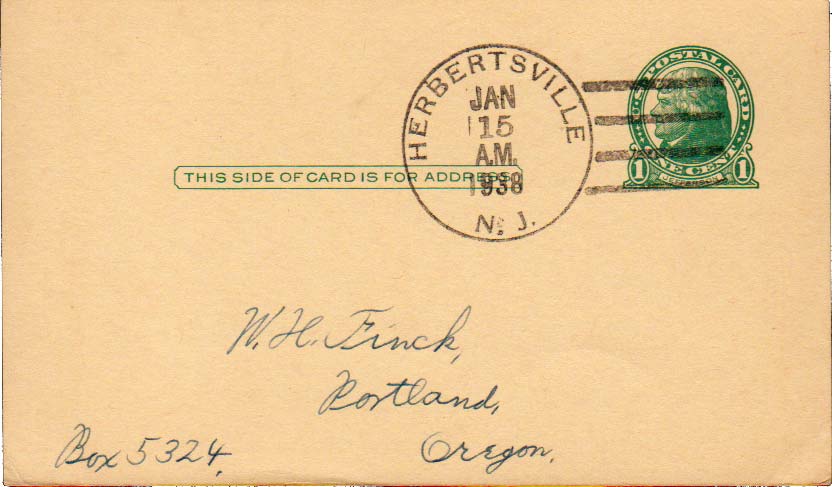 HERBERTSVILLE
JAN
15
A.M.
1938
N. J.
U.S. POSTAL CARD
1 ONE CENT 1
JEFFERSON
THIS SIDE OF CARD IS FOR ADDRESS
W. H. Finck,
Portland,
Box 5324, Oregon.